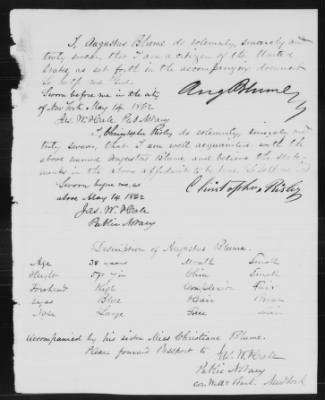 I, Augustus Blume do solemnly, sincerely and
truly swear, that I am a citizen of the United
States, as set forth in the accompanying document
So help me God.
Sworn before me in the city
of New York May 14 1862
Aug Blume
Jas. W. Hale Pub Notary
I, Christopher do solemnly, sincerely and
truly swear, that I am well acquainted with the
above named Augustus Blume and believe the state-
ments in the above affidavit to be true. So help me God
Sworn before me, as
above May 14 1862
Christopher
Jas. W. Hale
Public Notary
Description of Augustus Blume.
Age 38 years Mouth Small
Height 5 ft Chin Small
Forehead High Complexion Fair
Eyes Blue Hair
Nose Large Face
Accompanied by his sister Miss Christiane Blume.
Please forward Passport to Jas. W. Hale
Public Notary
cor. Wall &